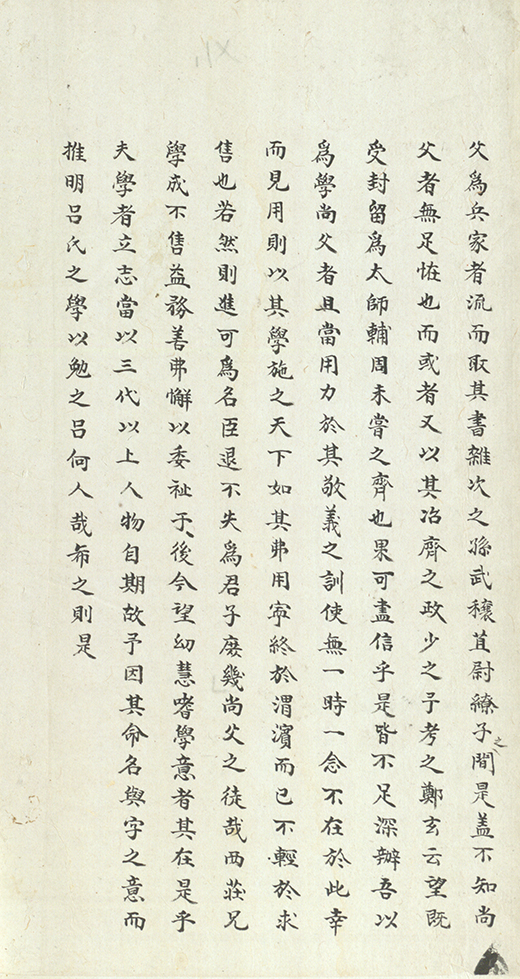 父為兵家者流而取其書雜次之孫武穰苴尉繚子之間是盖不知尚
父者無足恠也而或者又以其治齊之政少之予考之鄭玄云望既
受封留為太師輔周未嘗之齊也果可盡信乎是皆不足深辦吾以
為學尚父者且當用力於其敬義之訓使無一時一念不在於此幸
而見用則以其學施之天下如其弗用寧終於渭濱而已不輕於求
售也若然則進可為名臣退不失為君子庶幾尚父之徒哉西莊兄
學成不售益務善弗懈以委祉于後今望幼慧嗜學意者其在是乎
夫學者立志當以三代以上人物自期故予因其命名與字之意而
推明呂氏之學以勉之呂何人哉希之則是